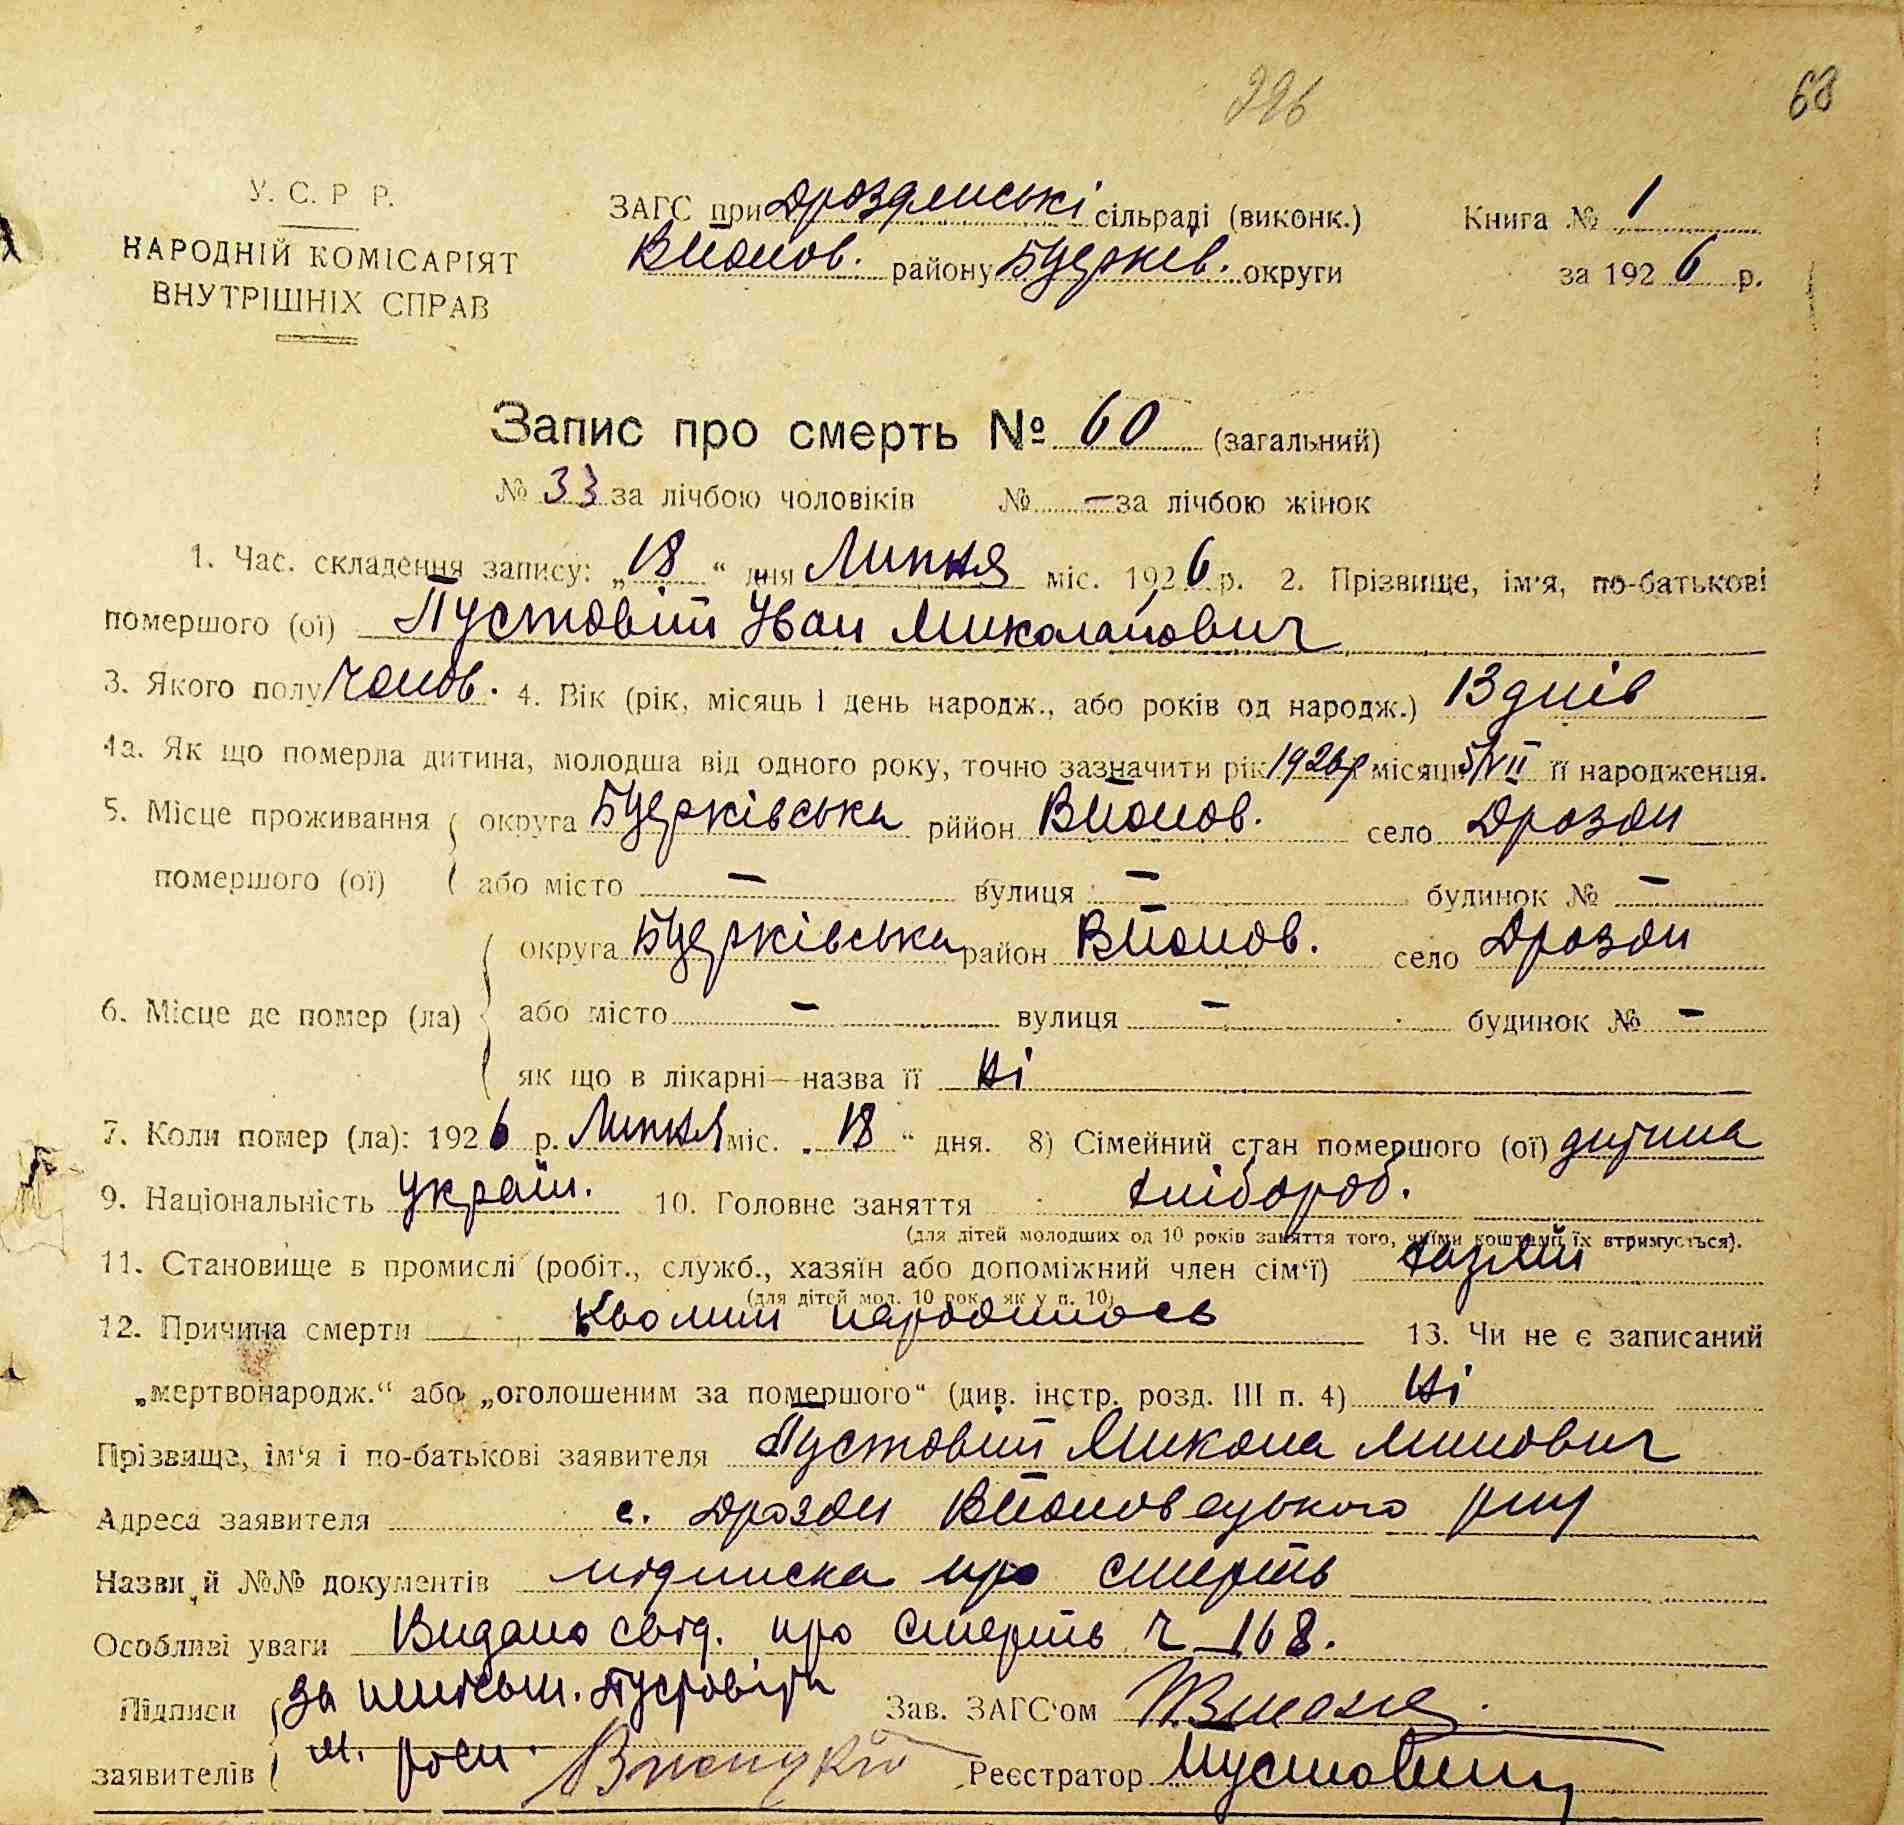 226
68
У. С. Р Р.
НАРОДНІЙ КОМІСАРІЯТ
ВНУТРІШНІХ СПРАВ
ЗАГС при Дроздянські сільраді (виконк.) Книга № 1
Вполов. району Бцерків. округи за 1926 р.
Запис про смерть № 60 (загальний)
№ 33 за лічбою чоловіків № – за лічбою жінок
1. Час. складення запису: „18“ дня Липня міс. 1926 р. 2. Прізвище, ім'я, по-батькові
помершого (ої) Пустовіт Іван Миколайович
3. Якого полу Чолов. 4. Вік (рік, місяць і день народж., або років од народж.) 13 днів
4а. Як що померла дитина, молодша від одного року, точно зазначити рік 1926 р місяць 5/VII її народження.
5. Місце проживання округа Бцерківська рййон Вполов. село Дрозди
помершого (ої) або місто – вулиця – будинок № –
округа Бцерківська район Вполов. село Дрозди
6. Місце де помер (ла) або місто – вулиця – будинок № –
як що в лікарні—назва її Ні
7. Коли помер (ла): 1926 р. Липня міс. „18“ дня. 8) Сімейний стан помершого (ої) дитина
9. Національність Україн. 10. Головне заняття хлібороб.
(для дітей молодших од 10 років заняття того, чиїми коштами їх втримується).
11. Становище в промислі (робіт., служб., хазяїн або допоміжний член сім'ї) хазяїн
(для дітей мол. 10 рок. як у п. 10)
12. Причина смерти Кволим народилось 13. Чи не є записаний
„мертвонародж.“ або „оголошеним за помершого“ (див. інстр. розд. III п. 4) Ні
Прізвище, ім'я і по-батькові заявителя Пустовіт Микола
Адреса заявителя с. Дрозди
Назви й №№ документів підписка про смерть
Особливі уваги Видано свід. про смерть Ч 168.
Підписи За Пустовіта Зав. ЗАГС'ом
заявителів Реєстратор